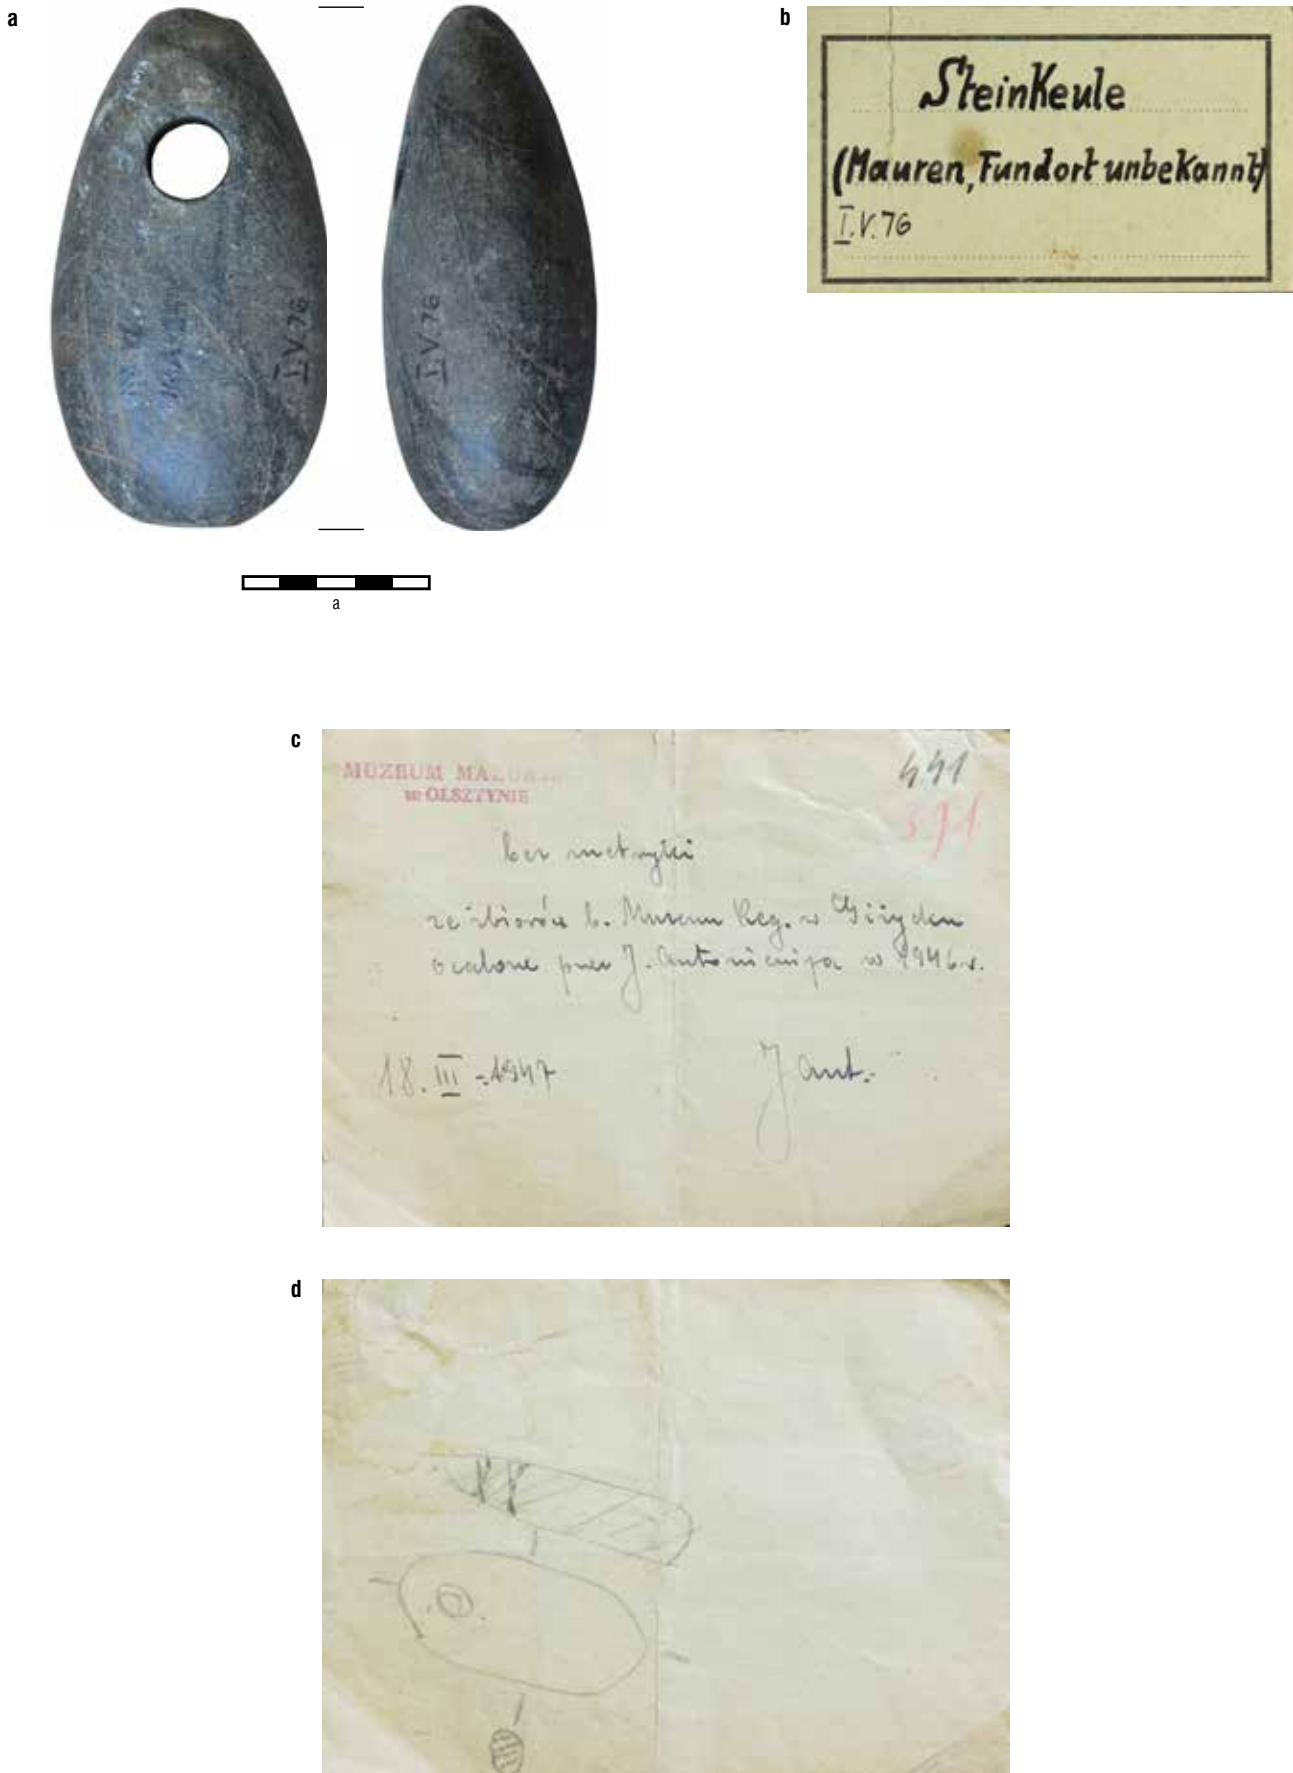 a
I.V.76
I.V.76
a
b
Steinkeule
(Mauren, Fundort unbekannt)
I.V.76
c
MUZEUM
w OLSZTYNIE
441
591
bez metryki
ze zbiorów b. Muzeum Reg. w Giżycku
ocalone przez J. Antoniewicza w 1946 r.
18. III - 1947
J Ant.
d